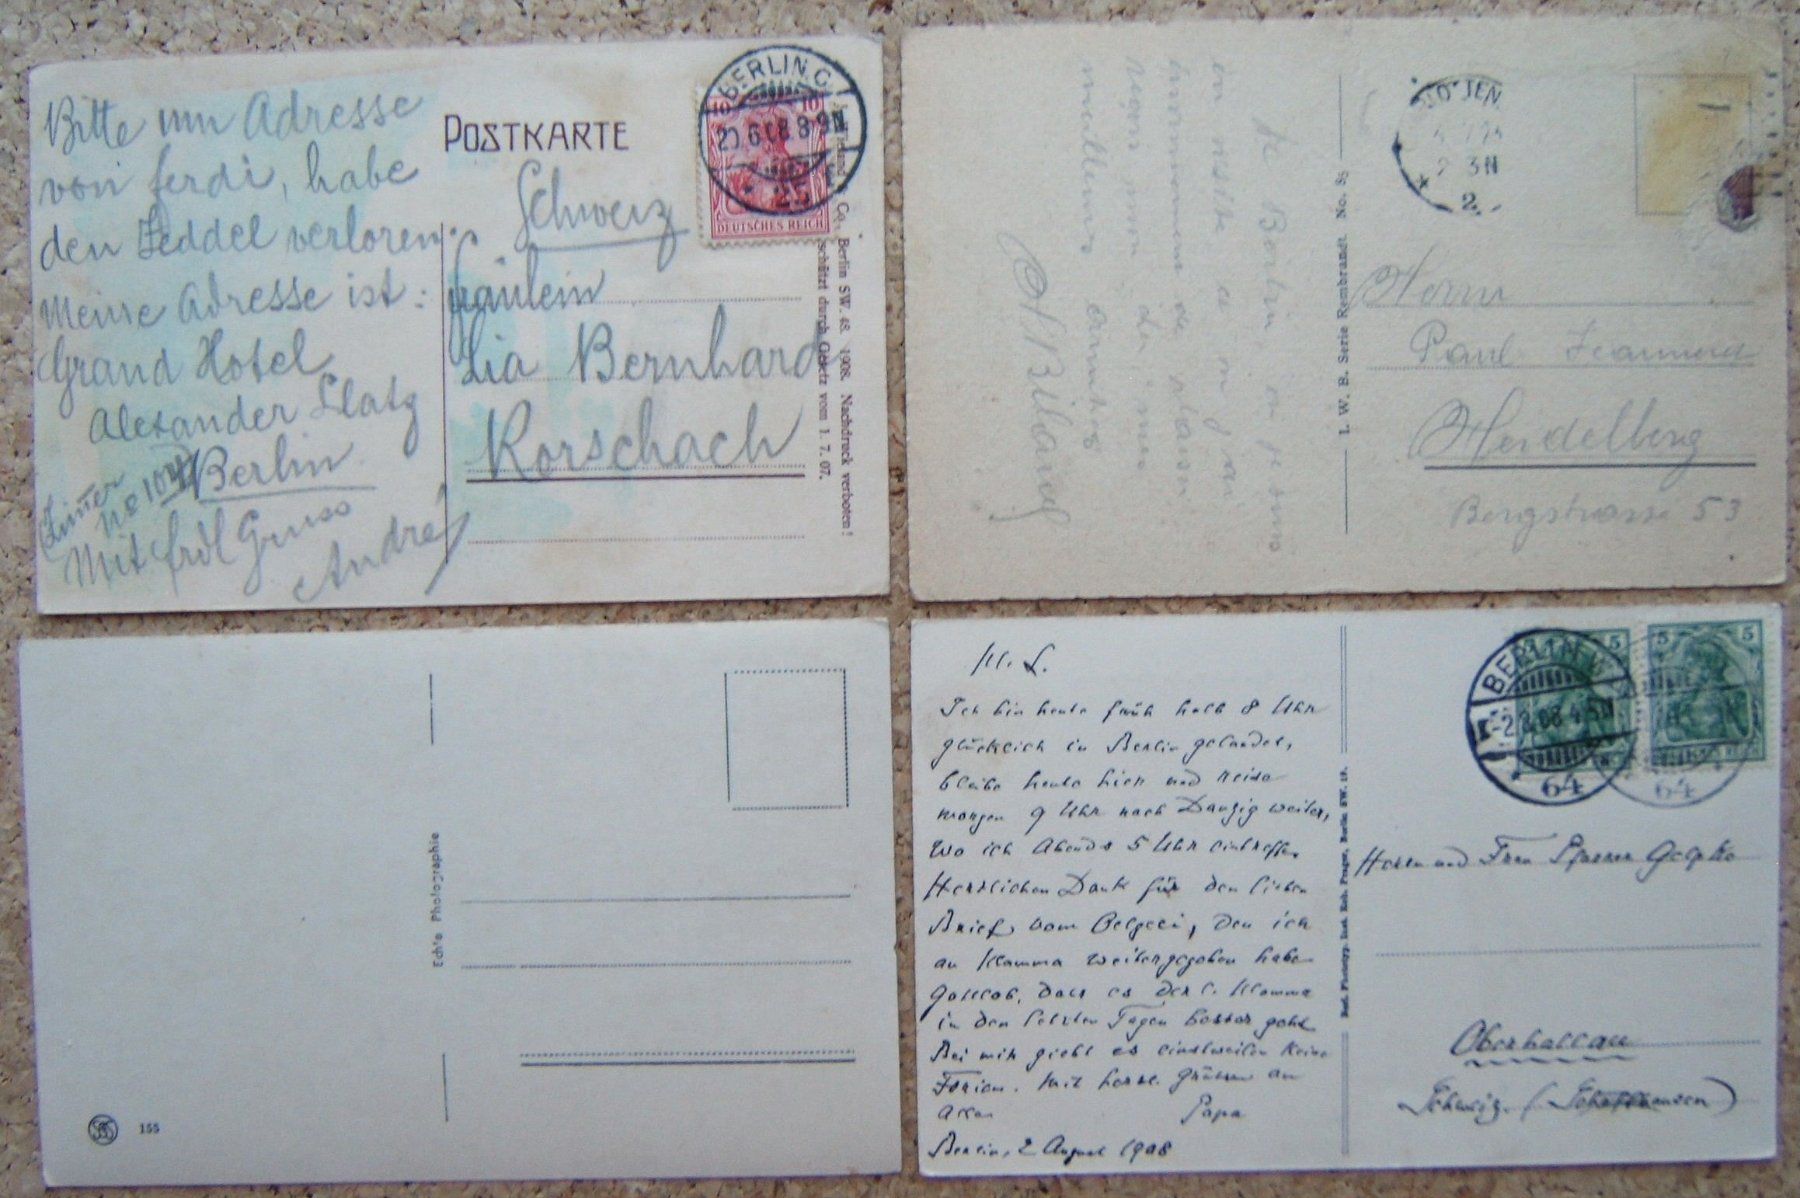 Bitte um Adresse
von Ferdi, habe
den Zeddel verloren.
Meine Adresse ist:
Grand Hotel
Alexander Platz
Berlin
Zimer
No 104
Mit frdl Gruss
André
POSTKARTE
Schweiz
Fräulein
Lia Bernhard
Rorschach
BERLIN C.
20.6.08.8-9N
* 25
10 10
DEUTSCHES REICH
Co., Berlin SW. 48. 1908. Nachdruck verboten!
schützt durch Gesetz vom 1. 7. 07.
de Berlin, où je suis
en visite et où j'ai
meilleurs
I. W. B. Serie Rembrandt. No. 85
3 N
* 2.
Herrn
Paul
Heidelberg
Bergstrasse 53
Echte Photographie
155
M. L.
Ich bin heute früh halb 8 Uhr
glücklich in Berlin gelandet,
bleibe heute hier und reise
morgen 9 Uhr nach Danzig weiter,
wo ich Abends 5 Uhr eintreffe.
Herzlichen Dank für den lieben
Brief vom den ich
an Mamma weitergegeben habe
Gottlob, dass es der l. Mamma
in den letzten Tagen besser geht
Bei mir giebt es einstweilen keine
Ferien. Mit herzl. Grüssen an
Alle Papa
Berlin, 2 August 1908
Berl. Phototyp. Inst. Rob. Prager, Berlin SW. 19.
BERLIN W
-2.8.08.4-5N
* 64
64
5
5 5
Herrn und Frau Pfarrer Gelpke
Oberhallau
Schweiz. (Schaffhausen)